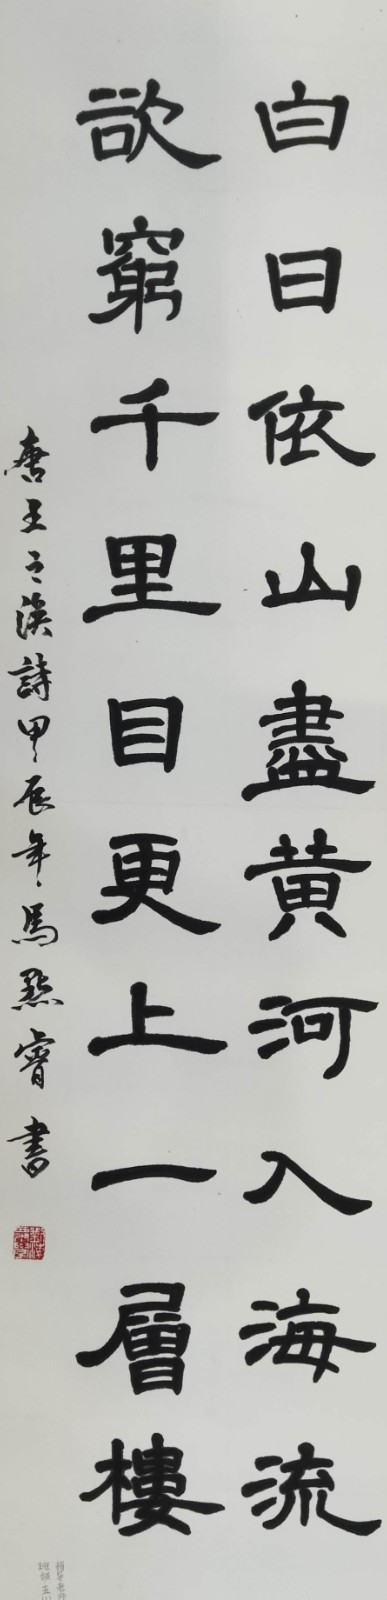 白日依山盡黄河入海流
欲窮千里目更上一層樓
唐王之渙詩甲辰年馬㸃睿書